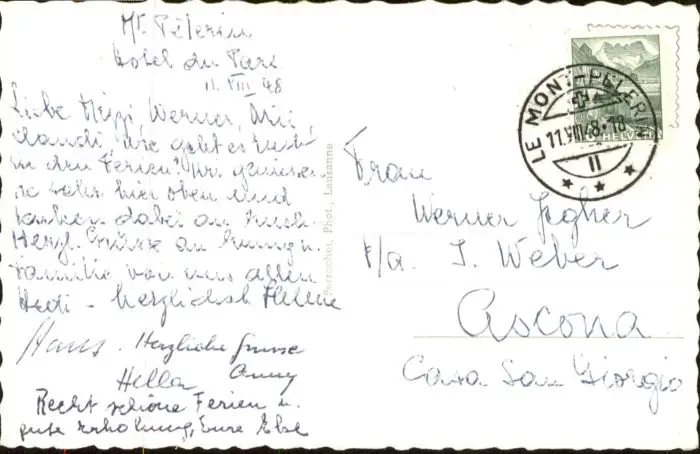 Mt. Pélerin
Hotel du Parc
11. VIII 48
Liebe Werner,
wie geht es Euch
in den Ferien? Wir geniessen
es sehr hier oben und
denken dabei an Euch.
Herzl. Grüsse an
Familie von uns allen
Hedi - herzlichst Helene
Hans. Herzliche Grüsse
Hella Anny
Recht schöne Ferien u.
gute Erholung, Eure Else
Perrochet, Phot., Lausanne
LE MONT-PÉLERIN
11.VIII.48-18
II
HELVETIA
Frau
Werner Jegher
p/a. J. Weber
Ascona
Casa San Giorgio